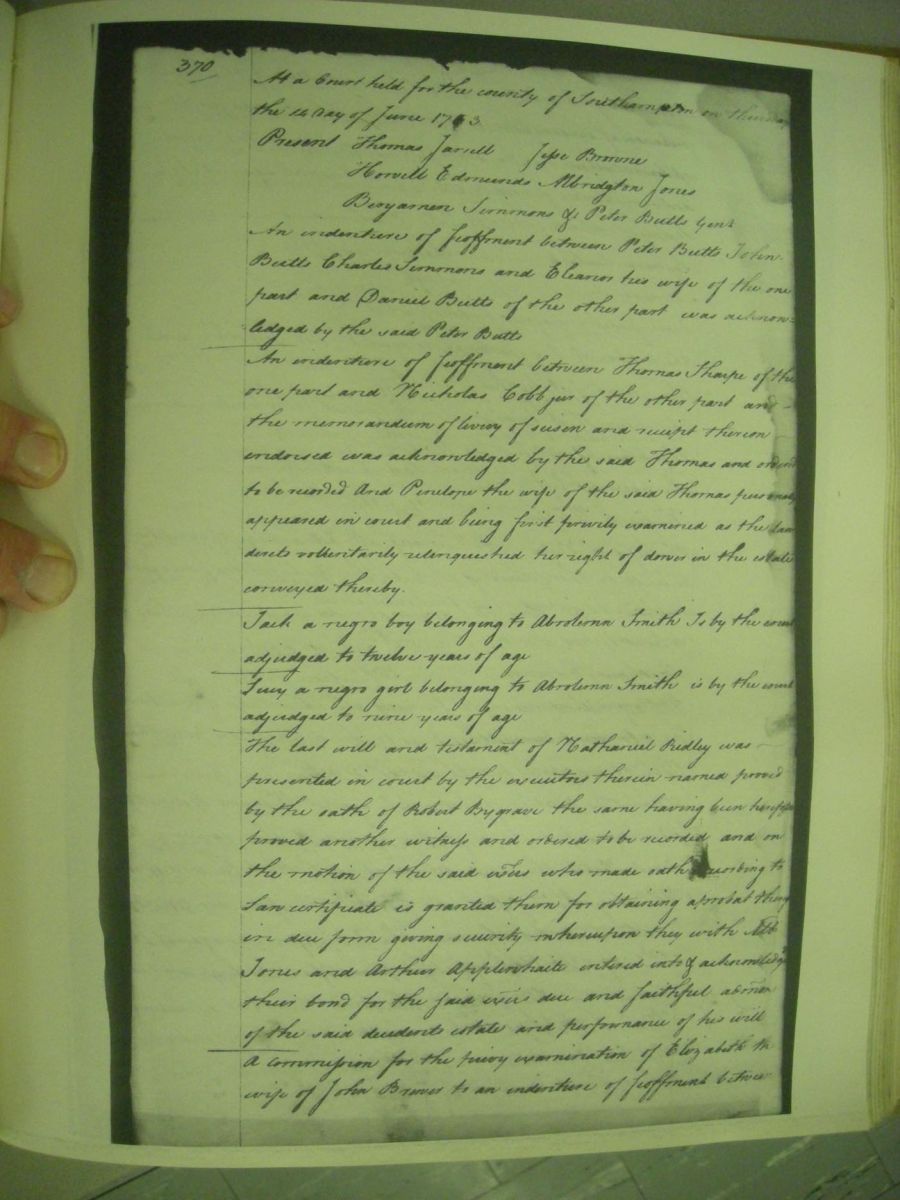 370
At a Court held for the county of Southampton on
the 14 Day of June 17 3
Present Thomas Jarrell Jesse Browne
Howell Edmunds Albridgton Jones
Benjamen Simmons & Peter Butts Gent
An indenture of feoffment between Peter Butts John
Butts Charles Simmons and Eleanor his wife of the one
part and Daniel Butts of the other part was acknow=
ledged by the said Peter Butts
An indenture of feoffment between Thomas Sharpe of the
one part and Nicholas Cobb junr of the other part and
the memorandum of livery of seisen and receipt thereon
endorsed was acknowledged by the said Thomas and ordered
to be recorded And Penelope the wife of the said Thomas personaly
appeared in court and being first privily examened as the law
directs volluntarily relenqueshed her right of dower in the estate
conveyed thereby.
Jack a negro boy belonging to Absolemn Smith Is by the court
adjudged to twelve years of age
Lucy a negro girl belonging to Absolemn Smith is by the court
adjudged to nine years of age
The last will and testament of Nathaniel Ridley was
presented in court by the executors therein named proved
by the oath of Robert Bygrave the same having been
proved another witness and ordered to be recorded and on
the motion of the said exōrs who made oath according to
Law certificate is granted them for obtaining a probat
in due form giving security whereupon they with
Jones and Arthur Applewhaite entered into & acknowledged
their bond for the said exōrs due and faithful
of the said decedents estate and performance of his will
A commission for the privy examination of Elizabeth th
wife of John Brewer to an indenture of feoffment betwee